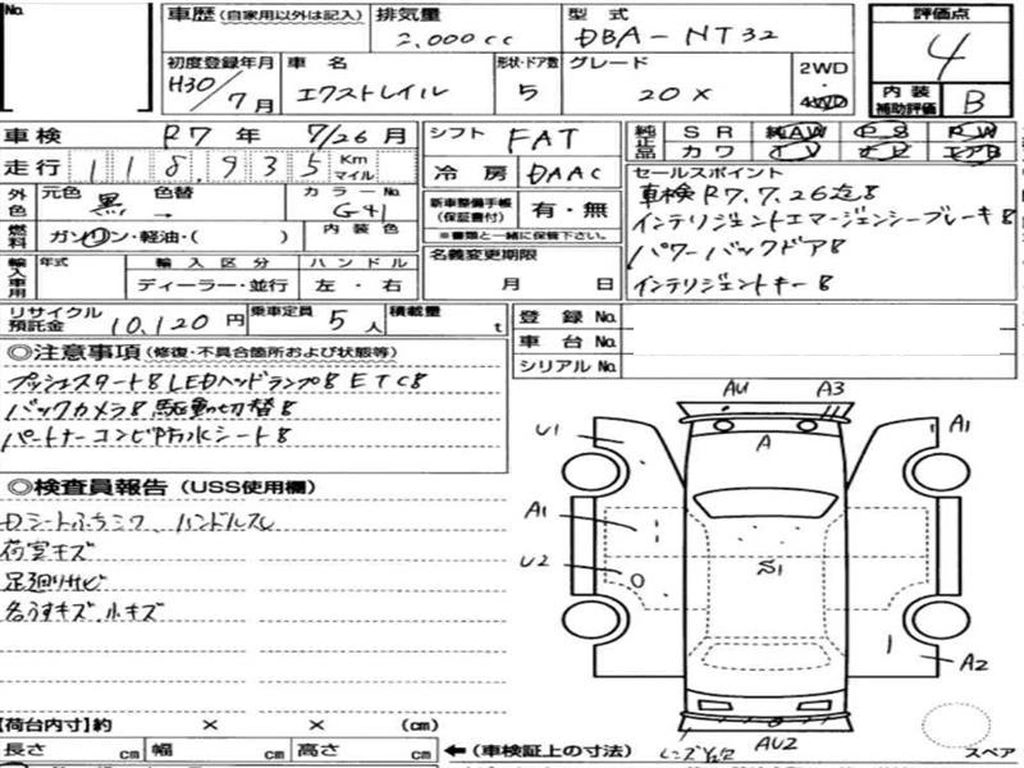 No.
車歴(自家用以外は記入) 排気量 型式 評価点
2,000cc DBA-NT32 4
初度登録年月 車名 形状・ドア数 グレード 2WD
H30/7月 エクストレイル 5 20X ・4WD
内装補助評価 B
車検 R7年 7/26月 シフト FAT 純正品 SR 純AW PS PW
カワ TV ナビ エアB
走行 118,935 Km マイル 冷房 DAAC セールスポイント
外色 元色 黒 色替 → カラーNo. G41 新車整備手帳(保証書付) 有・無
車検R7.7.26迄8
インテリジェントエマージェンシーブレーキ8
燃料 ガソリン・軽油・( ) 内装色 ※書類と一緒に保管下さい。
パワーバックドア8
輸入車用 年式 輸入区分 ハンドル 名義変更期限
ディーラー・並行 左・右 月 日
インテリジェントキー8
リサイクル預託金 10,120円 乗車定員 5人 積載量 t 登録No.
車台No.
シリアルNo.
◎注意事項(修復・不具合箇所および状態等)
プッシュスタート8 LEDヘッドランプ8 ETC8
バックカメラ8 駆動切替8
パートナーコンビ防水シート8
◎検査員報告(USS使用欄)
Dシートふちシワ、ハンドルスレ
荷室キズ
足廻りサビ
各うすキズ、小キズ
AU A3
U1 A A1
A1
U2 S1
A2
【荷台内寸】約 × × (cm)
長さ cm 幅 cm 高さ cm ←(車検証上の寸法)
レンズ AU2 スペア